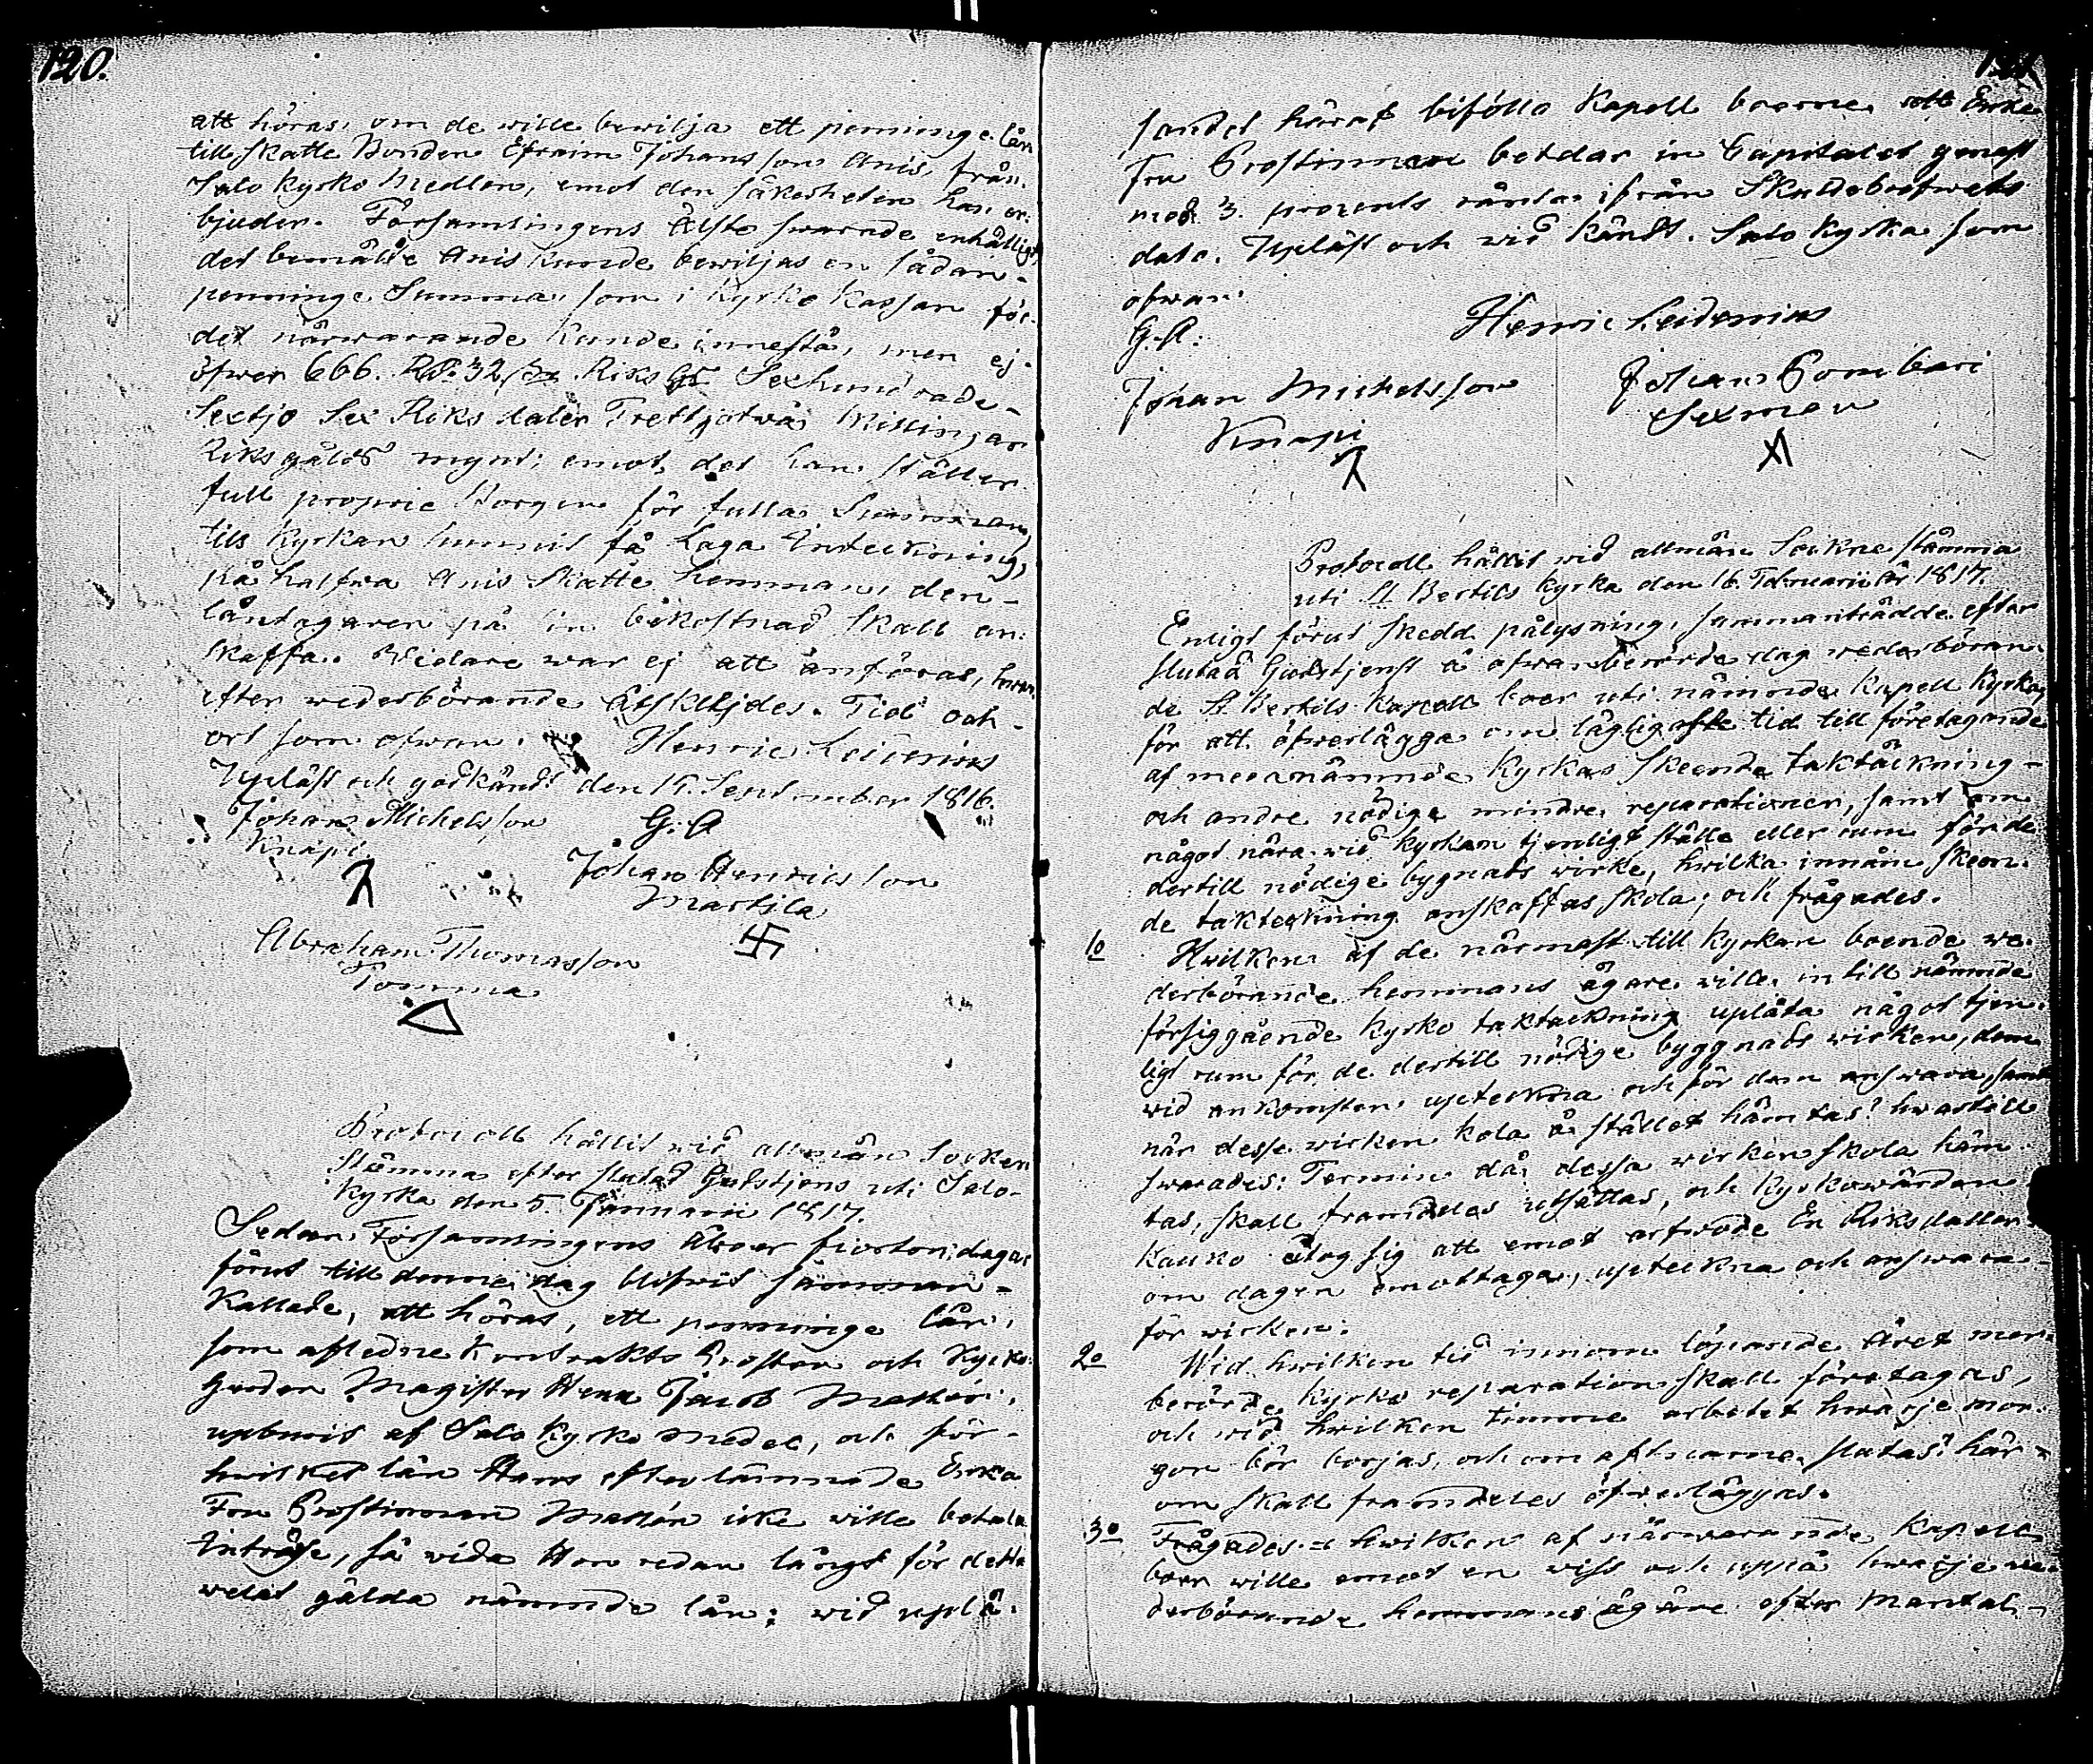 120.
att höras, om de wille bewilja ett penninge lån
till Skatte Bonden Efraim Johansson Anis, från
Salo Kyrko Medlen, emot den säkerheten han er-
bjuder. Församlingens Älste swarade enhälligt,
det bemälde Anis kunde bewiljas en sådan
penninge Summa, som i Kyrko Kassan för
det närwarande kunde innestå, men ej
öfwer 666. Rd. 32 Riks Gs Sexhundrade
Sextjo Sex Riksdaler Trettjotwå Skillingar
Riksgälds mynt; emot det han ställer
full proprie Borgen för fulla Summan,
tills Kyrkan hunnit få Laga Inteckning,
på halfwa Anis Skatte hemman, den
låntagaren på sin bekostnad skall an-
skaffa. Widare war ej att anföras,
efter wederbörande Åtskildjdes. Tid och
ort som ofwan. Henric Leidenius
Upläst och godkändt den 15. September 1816.
Johan Michelsson G. A
Knapi
Johan Henricsson
Martila
Abraham Thomasson
Tomma
Protocoll hållit wid allmän Socken
Stämma efter slutad Gudstjens uti Salo
Kyrka den 5. Januarii 1817.
Sedan Församlingens Åboer fiorton dagar
förut till denne dag blifwit samman-
Kallade, att höras, ett penninge lån,
som afledne Kontrakts Prosten och Kyrko
herden Magister Herr Jacob
upburit af Salo Kyrko medel, och för
hwilket lån Hans efterlämnade Enka
Fru Prostinnan icke wille betala
Inträße, så wida Hon redan långt för detta
welat gälda nämnde lån; wid uplä-
sandet häraf biföllo Kapell boerne att Enke
Fru Prostinnan betalar in Capitalet genast
med 3. procents ränta ifrån Skuldebrefwets
dato. Upläst och wid kändt. Salo Kyrka som
ofwan.
G. A. Henric Leidenius
Johan Michelsson Johan Pombari
Knapi Sexman
Protocoll hållit wid allmän Sockne stämma
uti St Bertils Kyrka den 16. Februarii År 1817.
Enligt förut skedd pålysning, sammanträdde efter
slutad Gudstjenst å ofwanberörde dag wederböran-
de St. Bertils Kapell boer uti nämnde Kapell Kyrka,
för att öfwerlägga om lägligaste tid till företagande
af meranämnde Kyrkas skeende taktäckning
och andre nödige mindre reparationer, samt om
något nära wid Kyrkan tjenligt ställe eller rum för de
dertill nödige bygnads wirke, hwilka innan skeen-
de takteckning anskaffas skola; och frågades.
1o Hwilken af de närmast till Kyrkan boende we-
derbörande hemmans ägare wille in till nämnde
försiggående Kyrko taktäckning uplåta något tjen-
ligt rum för de dertill nödige byggnads wirken, dem
wid ankomsten upteckna och för dem answara, samt
när desse wirken skola å stället hämtas? hwartill
swarades: Termin då dessa wirken skola häm-
tas, skall framdeles utsättas, och Kyrkowärden
Kauko åtog sig att emot arfwode En Riksdaller
om dagen emottaga, upteckna och answara
för wirken.
2o Wid hwilken tid innom löpande Året mer-
berörde Kyrko reparation skall företagas,
och wid hwilken timme arbetet hwarje mor-
gon bör borjas, och om aftnarne slutas? här-
om skall framdeles öfwerläggas.
3o Frågades: hwilken af närwarande Kapell
boer wille emot en wiss och uppå hwarje we-
derbörande hemmans ägare efter Mantal